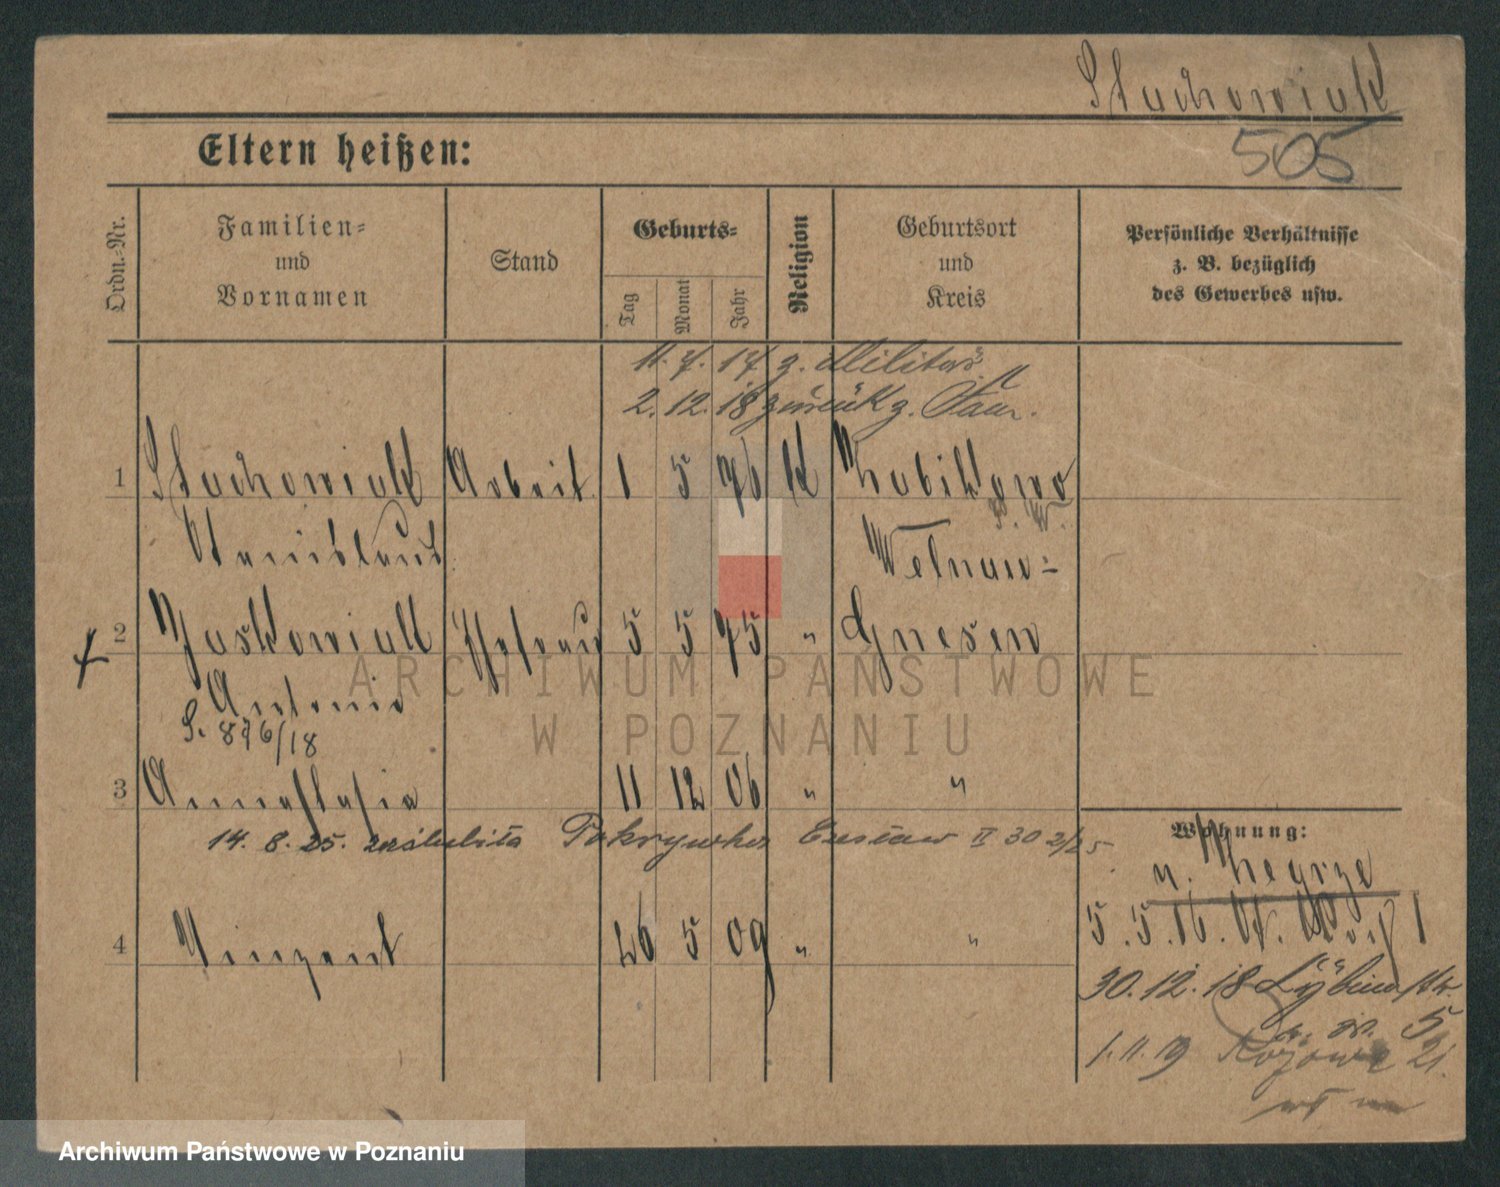 Stachowiak
505
Eltern heißen:
Ordn.-Nr.
Familien-
und
Vornamen
Stand
Geburts-
Tag
Monat
Jahr
Religion
Geburtsort
und
Kreis
Persönliche Verhältnisse
z. B. bezüglich
des Gewerbes usw.
11. 7. 17 z. Militär
2. 12. 18 zurück z. Fam.
1 Stachowiak Arbeit. 1 5 76 K Zabikowo
Stanislaus Welnau-
2 Juskowiak Ehefrau 5 5 75 " Gnesen
Antonie
S. 876/18
3 Annastasia 11 12 06 " "
14. 8. 25. zaślubiła Pokrywka Gustaw II 30 2/25
4 Vinzent 26 5 09 " "
Wohnung:
n. Zegrze
5. 5. 16. St. 1
30. 12. 18 5
1. 11. 19 21.
ARCHIWUM PAŃSTWOWE
W POZNANIU
Archiwum Państwowe w Poznaniu